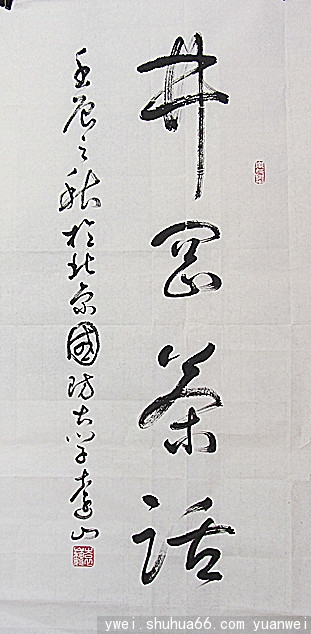 井冈茶话
壬辰之秋於北京國防大学李山
ywei.shuhua66.com yuanwei